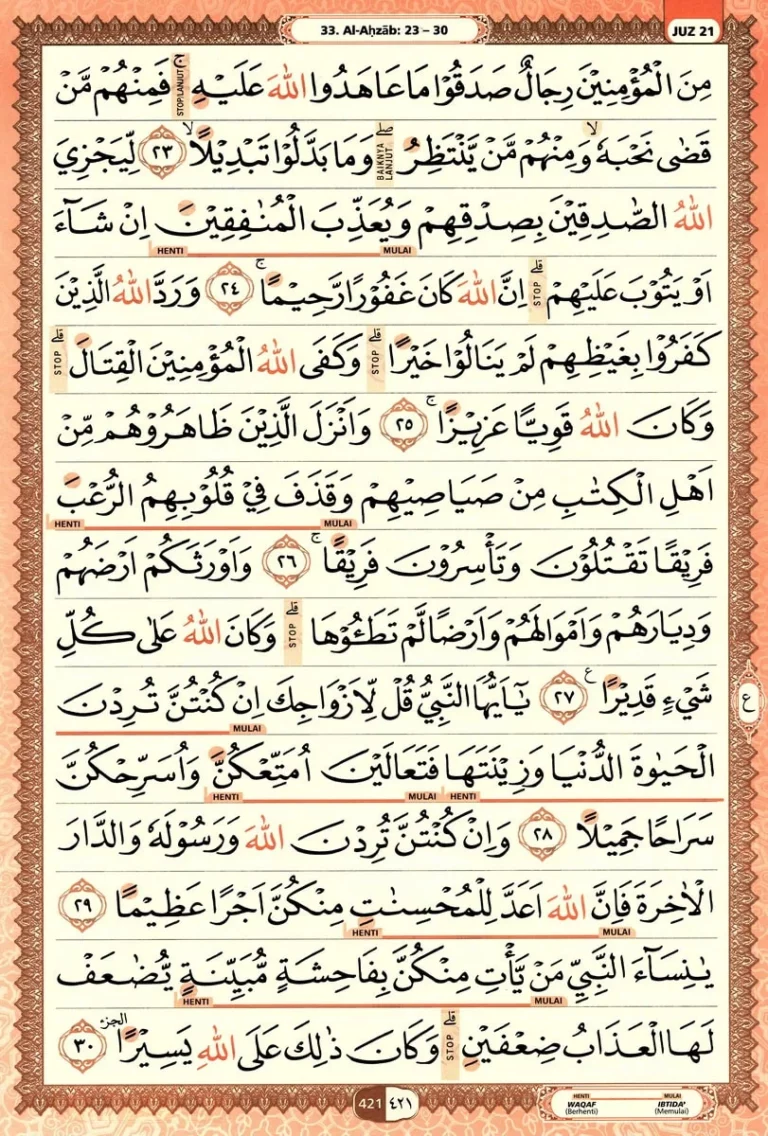 33. Al-Aḥzāb: 23 – 30
JUZ 21
مِنَ الْمُؤْمِنِيْنَ رِجَالٌ صَدَقُوْا مَا عَاهَدُوا اللّٰهَ عَلَيْهِ ۚ STOP/LANJUT فَمِنْهُمْ مَّنْ
قَضٰى نَحْبَهٗۙ وَمِنْهُمْ مَّنْ يَّنْتَظِرُ ۖ BAIKNYA LANJUT وَمَا بَدَّلُوْا تَبْدِيْلًاۙ ٢٣ لِّيَجْزِيَ
اللّٰهُ الصّٰدِقِيْنَ بِصِدْقِهِمْ وَيُعَذِّبَ الْمُنٰفِقِيْنَ اِنْ شَاۤءَ
HENTI MULAI
اَوْ يَتُوْبَ عَلَيْهِمْ ۗ STOP اِنَّ اللّٰهَ كَانَ غَفُوْرًا رَّحِيْمًاۚ ٢٤ وَرَدَّ اللّٰهُ الَّذِيْنَ
كَفَرُوْا بِغَيْظِهِمْ لَمْ يَنَالُوْا خَيْرًا ۗ STOP وَكَفَى اللّٰهُ الْمُؤْمِنِيْنَ الْقِتَالَ ۗ STOP
وَكَانَ اللّٰهُ قَوِيًّا عَزِيْزًاۚ ٢٥ وَاَنْزَلَ الَّذِيْنَ ظَاهَرُوْهُمْ مِّنْ
اَهْلِ الْكِتٰبِ مِنْ صَيَاصِيْهِمْ وَقَذَفَ فِيْ قُلُوْبِهِمُ الرُّعْبَ
HENTI MULAI
فَرِيْقًا تَقْتُلُوْنَ وَتَأْسِرُوْنَ فَرِيْقًاۚ ٢٦ وَاَوْرَثَكُمْ اَرْضَهُمْ
وَدِيَارَهُمْ وَاَمْوَالَهُمْ وَاَرْضًا لَّمْ تَطَـُٔوْهَا ۗ STOP وَكَانَ اللّٰهُ عَلٰى كُلِّ
شَيْءٍ قَدِيْرًا ࣖ ٢٧ يٰٓاَيُّهَا النَّبِيُّ قُلْ لِّاَزْوَاجِكَ اِنْ كُنْتُنَّ تُرِدْنَ
MULAI
ع
الْحَيٰوةَ الدُّنْيَا وَزِيْنَتَهَا فَتَعَالَيْنَ اُمَتِّعْكُنَّ وَاُسَرِّحْكُنَّ
HENTI MULAI HENTI
سَرَاحًا جَمِيْلًا ٢٨ وَاِنْ كُنْتُنَّ تُرِدْنَ اللّٰهَ وَرَسُوْلَهٗ وَالدَّارَ
الْاٰخِرَةَ فَاِنَّ اللّٰهَ اَعَدَّ لِلْمُحْسِنٰتِ مِنْكُنَّ اَجْرًا عَظِيْمًا ٢٩
HENTI MULAI
يٰنِسَاۤءَ النَّبِيِّ مَنْ يَّأْتِ مِنْكُنَّ بِفَاحِشَةٍ مُّبَيِّنَةٍ يُّضٰعَفْ
HENTI MULAI
لَهَا الْعَذَابُ ضِعْفَيْنِ ۗ STOP وَكَانَ ذٰلِكَ عَلَى اللّٰهِ يَسِيْرًا الجزء ٣٠
421 ٤٢١
HENTI MULAI
WAQAF IBTIDA'
(Berhenti) (Memulai)